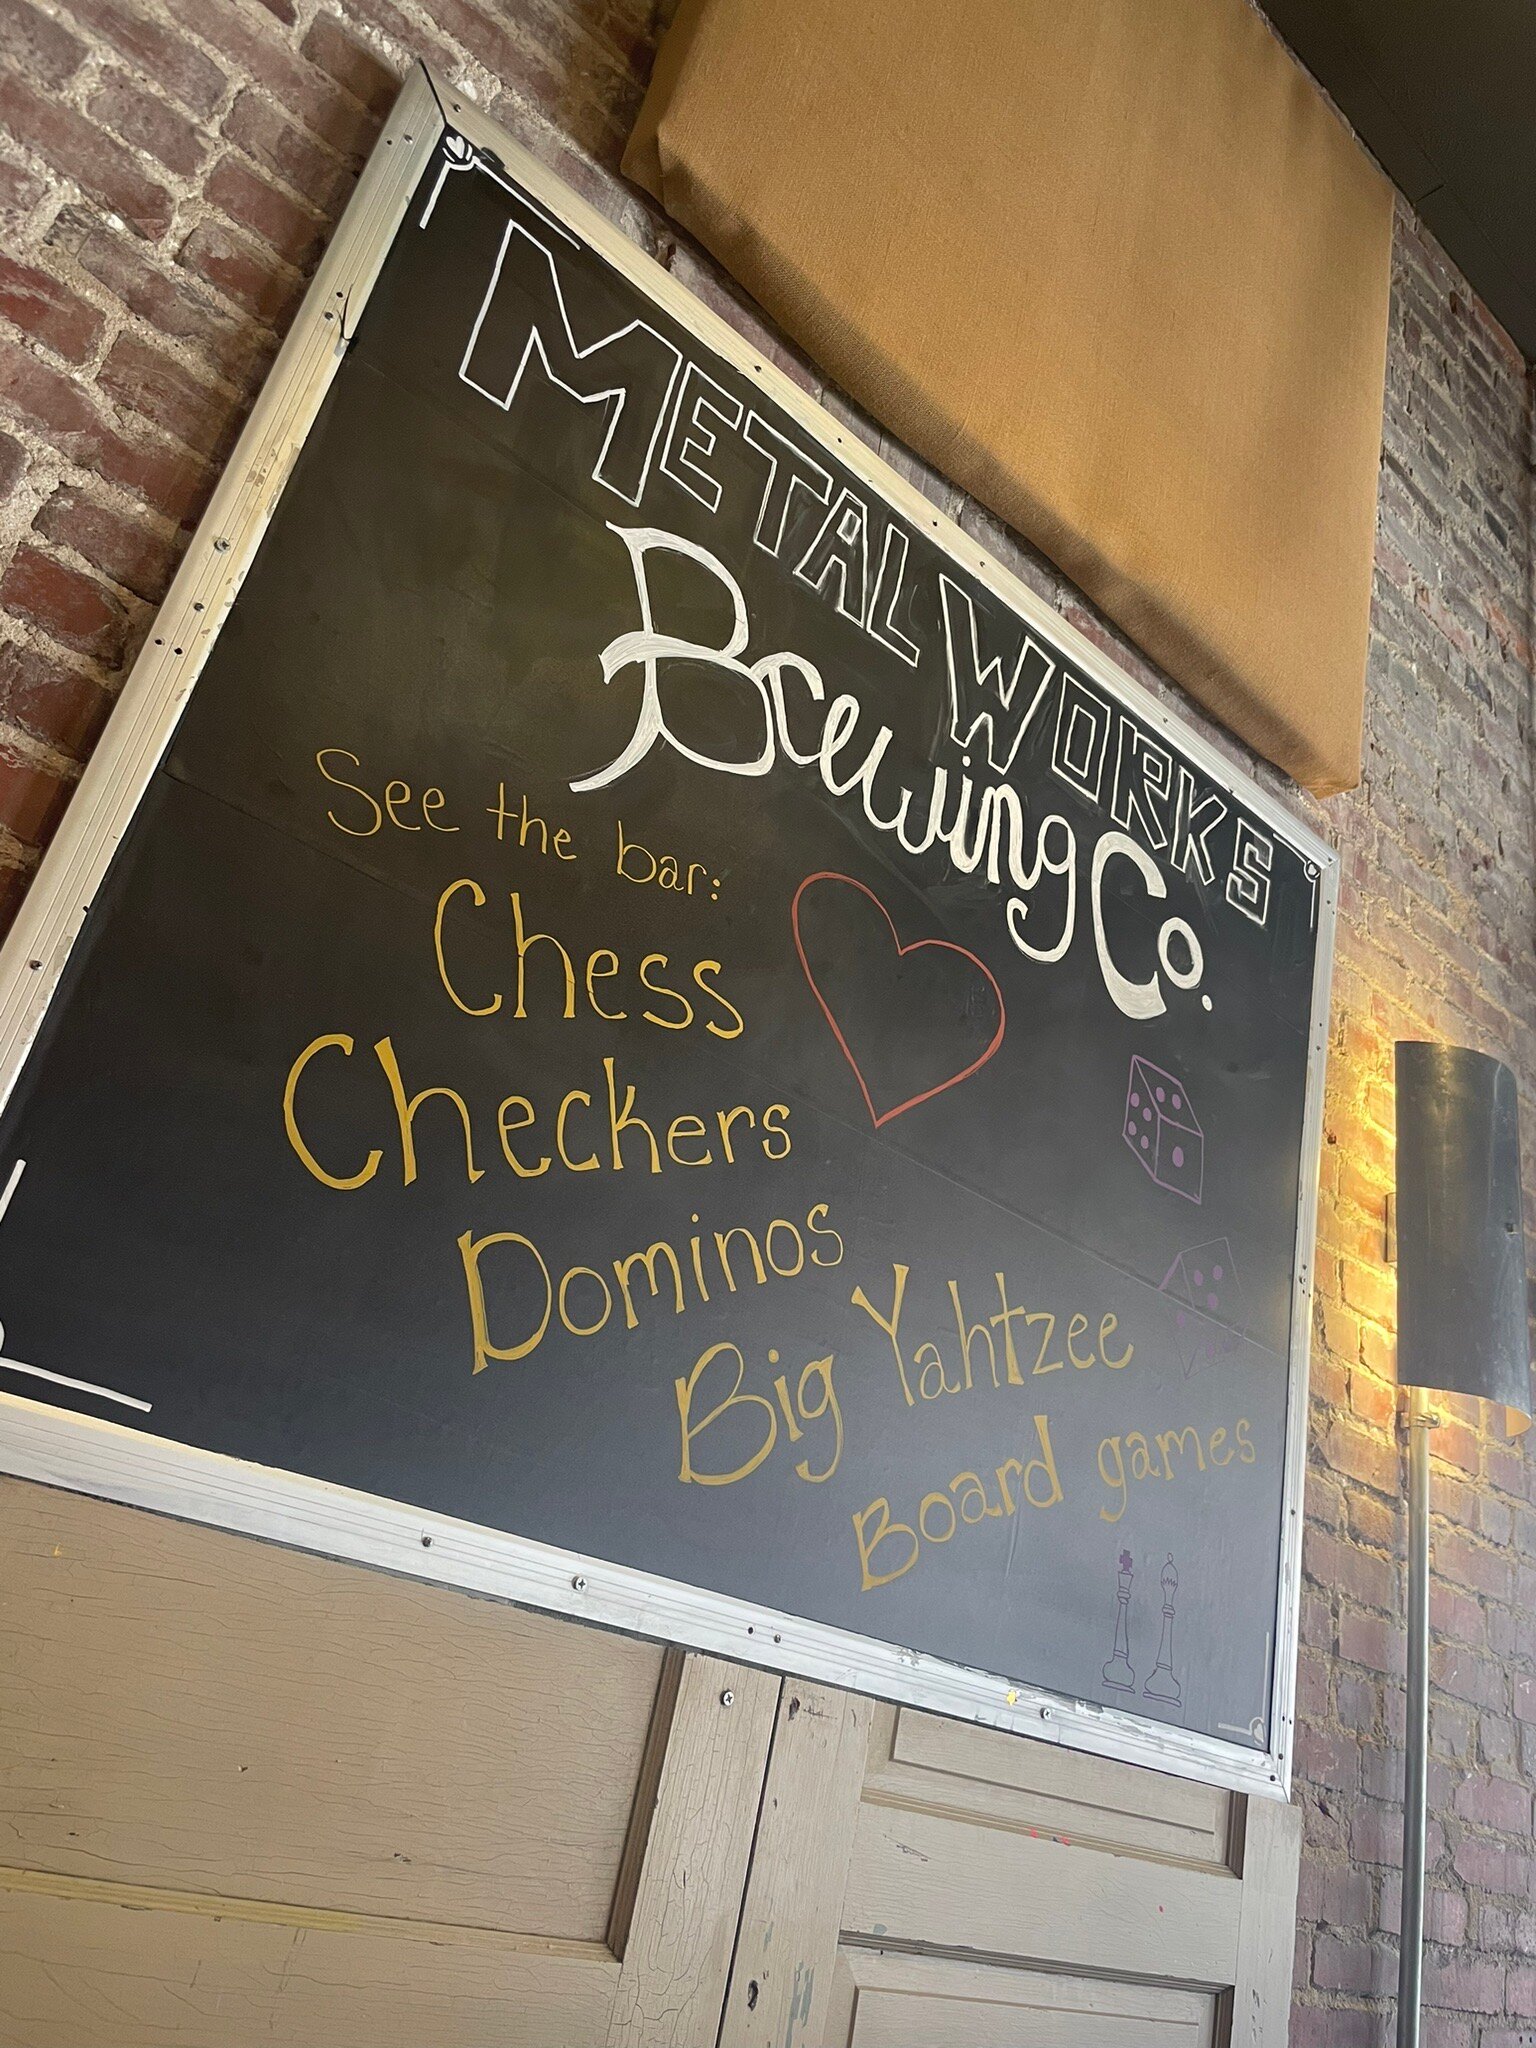 METAL WORKS
Brewing Co.
See the bar:
Chess
Checkers
Dominos
Big Yahtzee
Board games